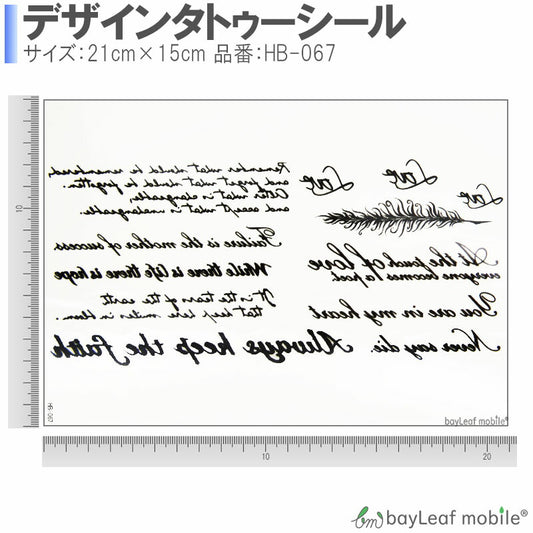 デザインタトゥーシール
サイズ:21cm×15cm 品番:HB-067
Remember what should be remembered,
and forget what should be forgotten.
Alter what is changeable,
and accept what is unchangeable.
Failure is the mother of success
While there is life there is hope
It is the tears of the earth
that keep here smiles in bloom.
Always keep the faith
Love
Love
Love
At the touch of love
everyone becomes a poet.
You are in my heart
Never say die.
HB-067
bayLeaf mobile®
10
10
20
bm bayLeaf mobile®